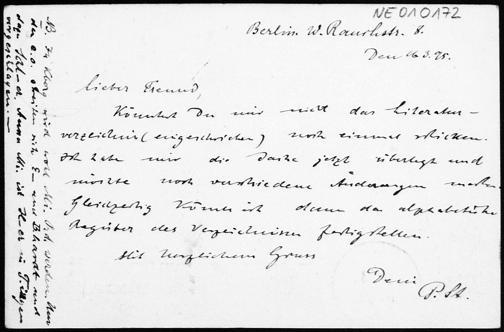 NE 010172
Berlin W. Rauchstr. 8.
Den 26.3.25.
Lieber Freund,
Könntest Du mir nicht das Literatur-
verzeichnis (eingeschrieben) noch einmal schicken.
Ich habe mir die Sache jetzt überlegt und
möchte noch verschiedene Änderungen machen
Gleichzeitig könnte ich dann das alphabetische
Register des Verzeichnisses fertigstellen.
Mit herzlichem Gruss
Dein
P. St.
NB. In wird wohl werden. Herr
der a.o. sich E und Ehardt und
dazu ist
vorgeschlagen.